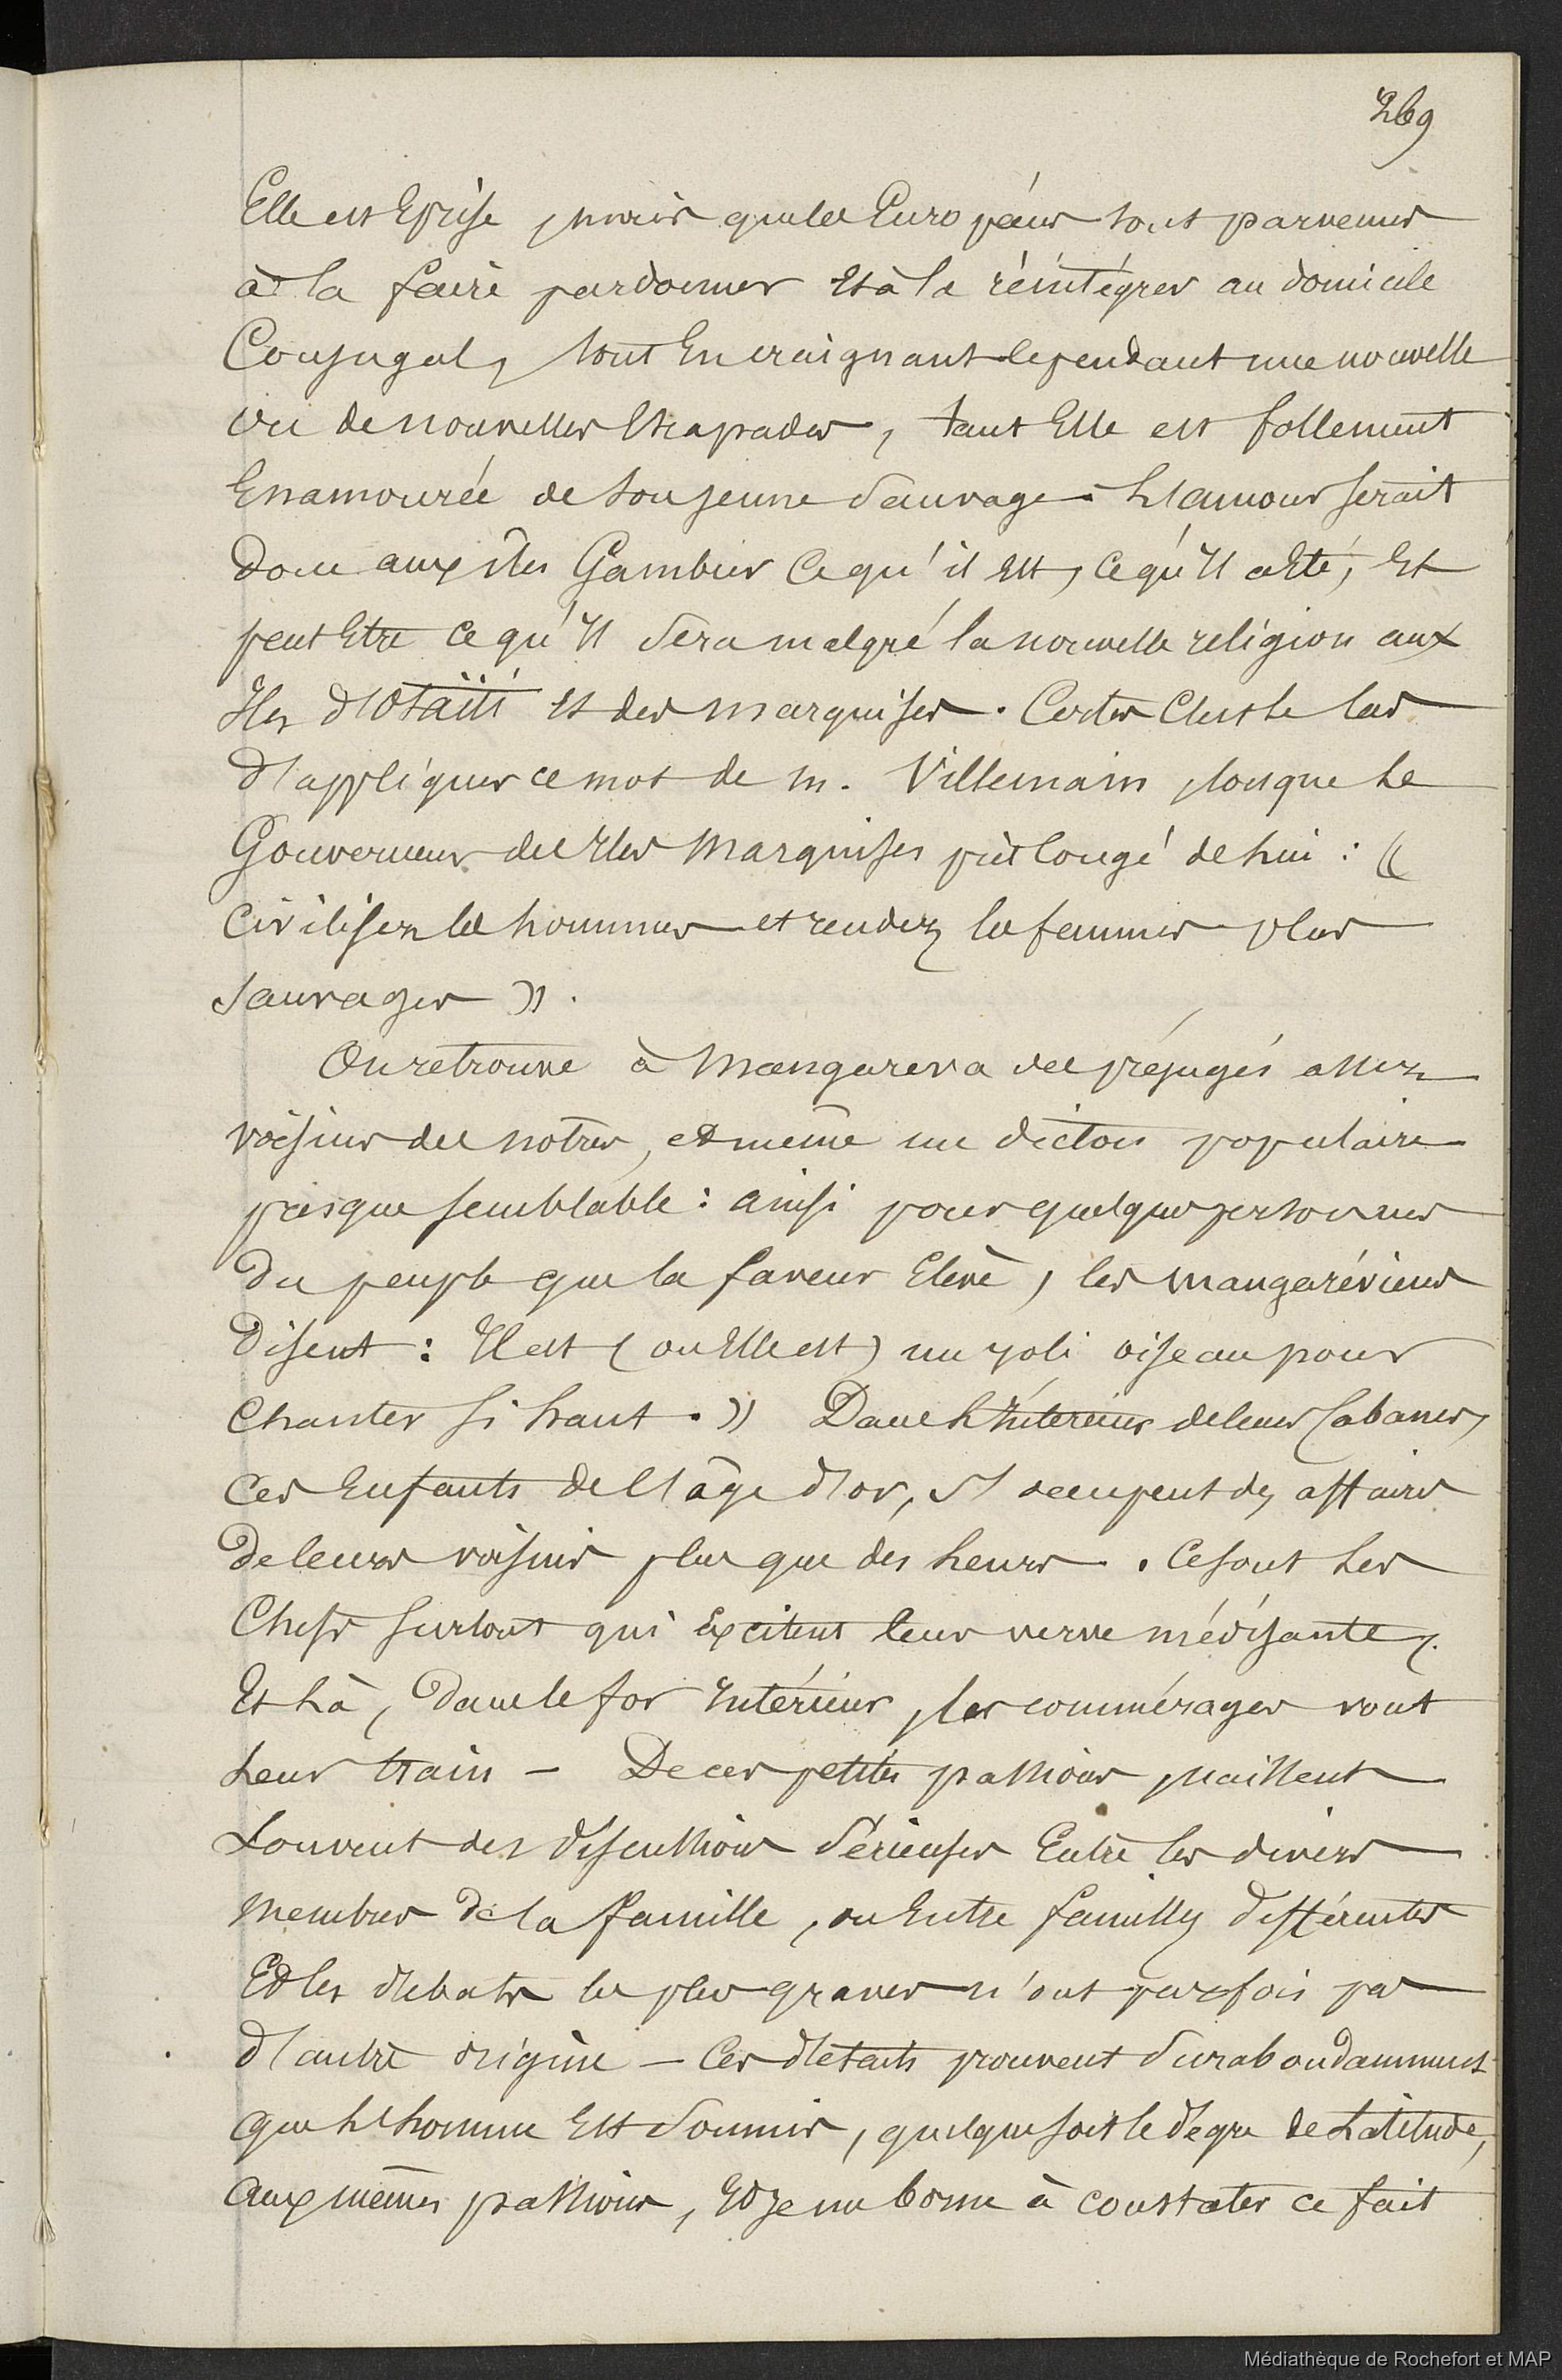 269
Elle est Éprise, mais que les Européens sont parvenus
à la faire pardonner Et à la réintégrer au domicile
Conjugal, tout En craignant cependant une nouvelle
ou de nouvelles Escapades, tant Elle est follement
Enamourée de son jeune Sauvage. L'amour serait
donc aux îles Gambier Ce qu'il Est, Ce qu'il a Eté, Et
peut Etre Ce qu'il sera malgré la nouvelle religion aux
Iles d'Otaïti Et des marquises. Certes C'est le Cas
d'appliquer ce mot de m. Villemain, lorsque le
Gouverneur des Iles Marquises prit Congé de lui : «
Civilisez les hommes et rendez les femmes plus
sauvages ».
On retrouve à Mangareva des préjugés assez
voisins des notres, et même un dicton populaire
presque semblable : ainsi pour quelques personnes
du peuple que la faveur Elève, les mangaréviens
disent : Il est (ou Elle est) un joli oiseau pour
Chanter si haut. » Dans l'Intérieur de leurs Cabanes,
Ces Enfants de l'âge d'or, s'occupent des affaires
de leurs voisins plus que des leurs. Ce sont les
Chefs surtout qui Excitent leur verve médisante,
Et là, dans le for Intérieur, les commérages vont
leur train — De ces petites passions, naissent
souvent des discussions sérieuses Entre les divers
membres de la famille, ou Entre familles différentes
Et les débats les plus graves n'ont parfois pas
d'autre origine — Ces détails prouvent surabondamment
que l'homme Est soumis, quelque soit le degré de Latitude,
aux mêmes passions, Et Je me borne à constater ce fait
Médiathèque de Rochefort et MAP